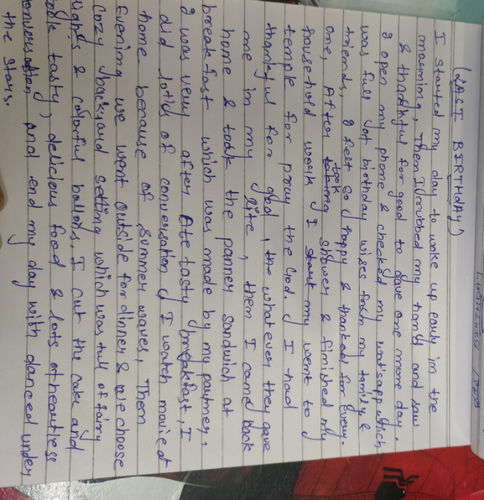 (LAST BIRTHDAY)
I started my day to wake up early in the
morning, Then I rubbed my hands and saw
& thankful for good to gave one more day.
I open my phone & checked my whatsapp which
was full of birthday wises from my family &
friends, I felt so happy & thankful for every
one, After took shower & finished my
household work I start my went to
temple for pray the God. I had
thankful for god, the whatever they gave
me in my life, then I came back
home & took the panner sandwich at
breakfast which was made by my
I was very after ate tasty breakfast, I
did lotls of conversation & I watch movie at
home because of summer waves, Then
evening we went outside for dinner & we choose
cozy backyard setting which was full of fairy
lights & colorful ballons, I cut the cake and
tasty, delicious food & lots of heartiess
conversation and end my day with danced under
the stars.